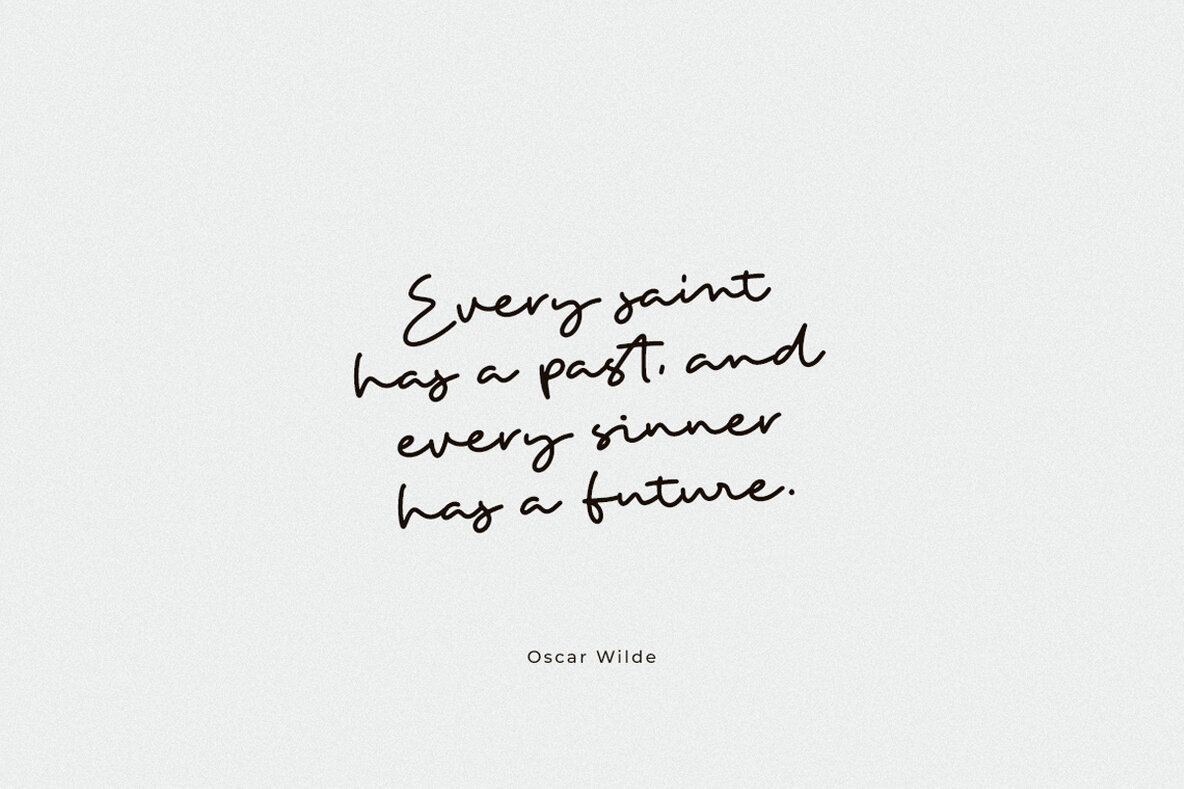 Every saint
has a past, and
every sinner
has a future.
Oscar Wilde